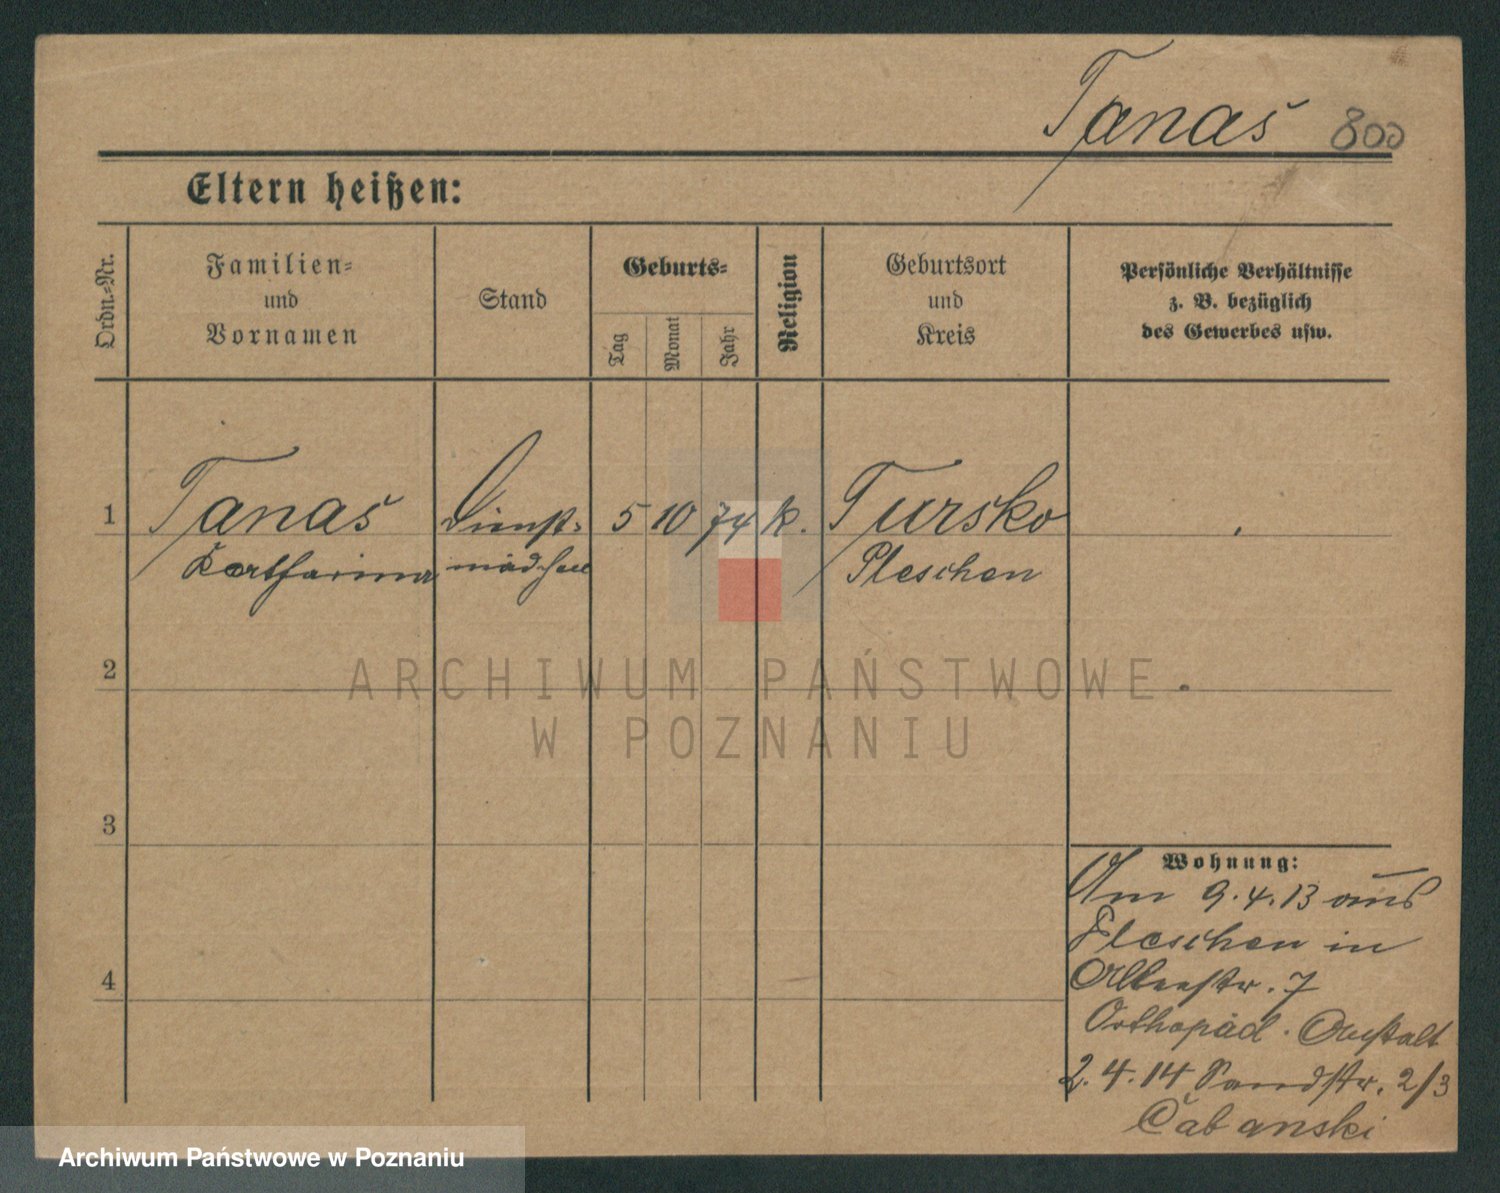 Tanaś 800
Eltern heißen:
Ordn.-Nr.
Familien-
und
Vornamen
Stand
Geburts-
Tag
Monat
Jahr
Religion
Geburtsort
und
Kreis
Persönliche Verhältnisse
z. B. bezüglich
des Gewerbes usw.
1 Tanaś Dienst- 5 10 74 k. Tursko
Katharina mädchen Pleschen
2
3
4
Wohnung:
Am 9.4.13 aus
Pleschen in
7
Orthopäd. Anstalt
2.4.14 Sandstr. 2/3
Cabanski
ARCHIWUM PAŃSTWOWE
W POZNANIU
Archiwum Państwowe w Poznaniu